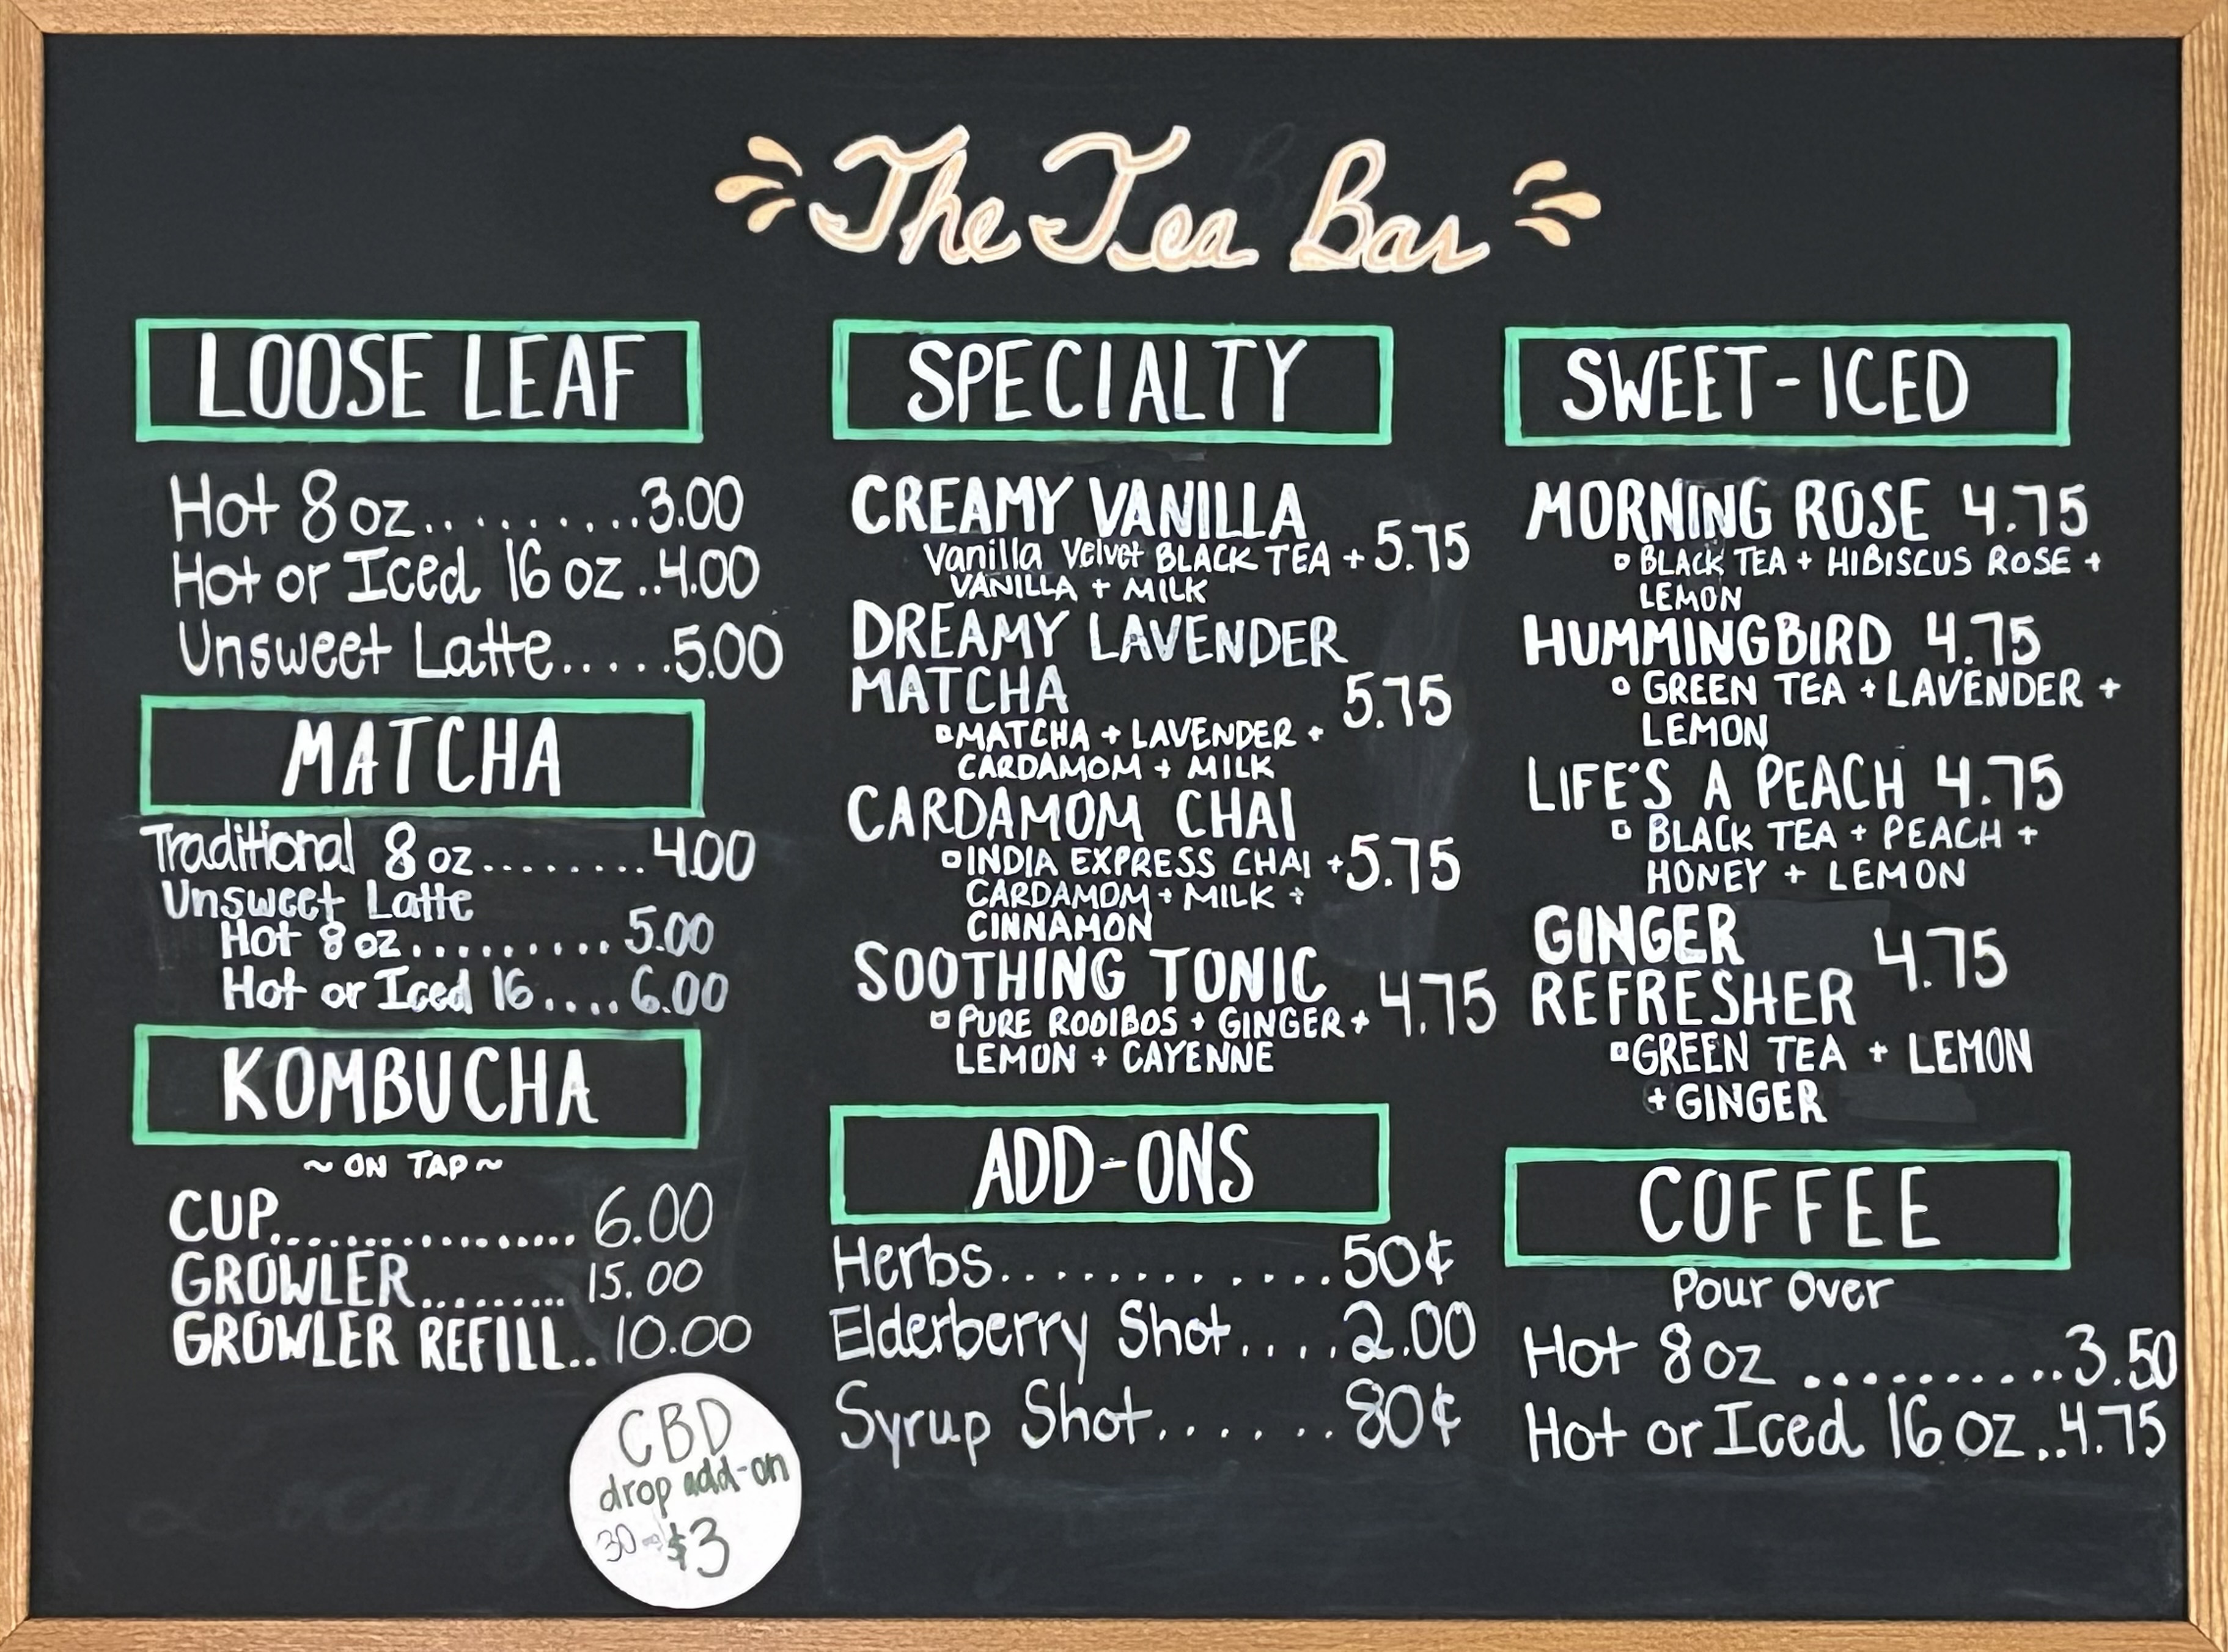 The Tea Bar
LOOSE LEAF
Hot 8 oz..........3.00
Hot or Iced 16 oz..4.00
Unsweet Latte.....5.00
MATCHA
Traditional 8 oz........4.00
Unsweet Latte
Hot 8 oz.........5.00
Hot or Iced 16....6.00
KOMBUCHA
~ ON TAP ~
CUP................. 6.00
GROWLER......... 15.00
GROWLER REFILL.. 10.00
CBD
drop add-on
$3
SPECIALTY
CREAMY VANILLA
Vanilla Velvet BLACK TEA + 5.75
VANILLA + MILK
DREAMY LAVENDER
MATCHA 5.75
MATCHA + LAVENDER +
CARDAMOM + MILK
CARDAMOM CHAI
INDIA EXPRESS CHAI + 5.75
CARDAMOM + MILK +
CINNAMON
SOOTHING TONIC 4.75
PURE ROOIBOS + GINGER +
LEMON + CAYENNE
ADD-ONS
Herbs.............50¢
Elderberry Shot....2.00
Syrup Shot.......80¢
SWEET-ICED
MORNING ROSE 4.75
BLACK TEA + HIBISCUS ROSE +
LEMON
HUMMINGBIRD 4.75
GREEN TEA + LAVENDER +
LEMON
LIFE'S A PEACH 4.75
BLACK TEA + PEACH +
HONEY + LEMON
GINGER
REFRESHER 4.75
GREEN TEA + LEMON
+ GINGER
COFFEE
Pour Over
Hot 8 oz ...........3.50
Hot or Iced 16 oz..4.75